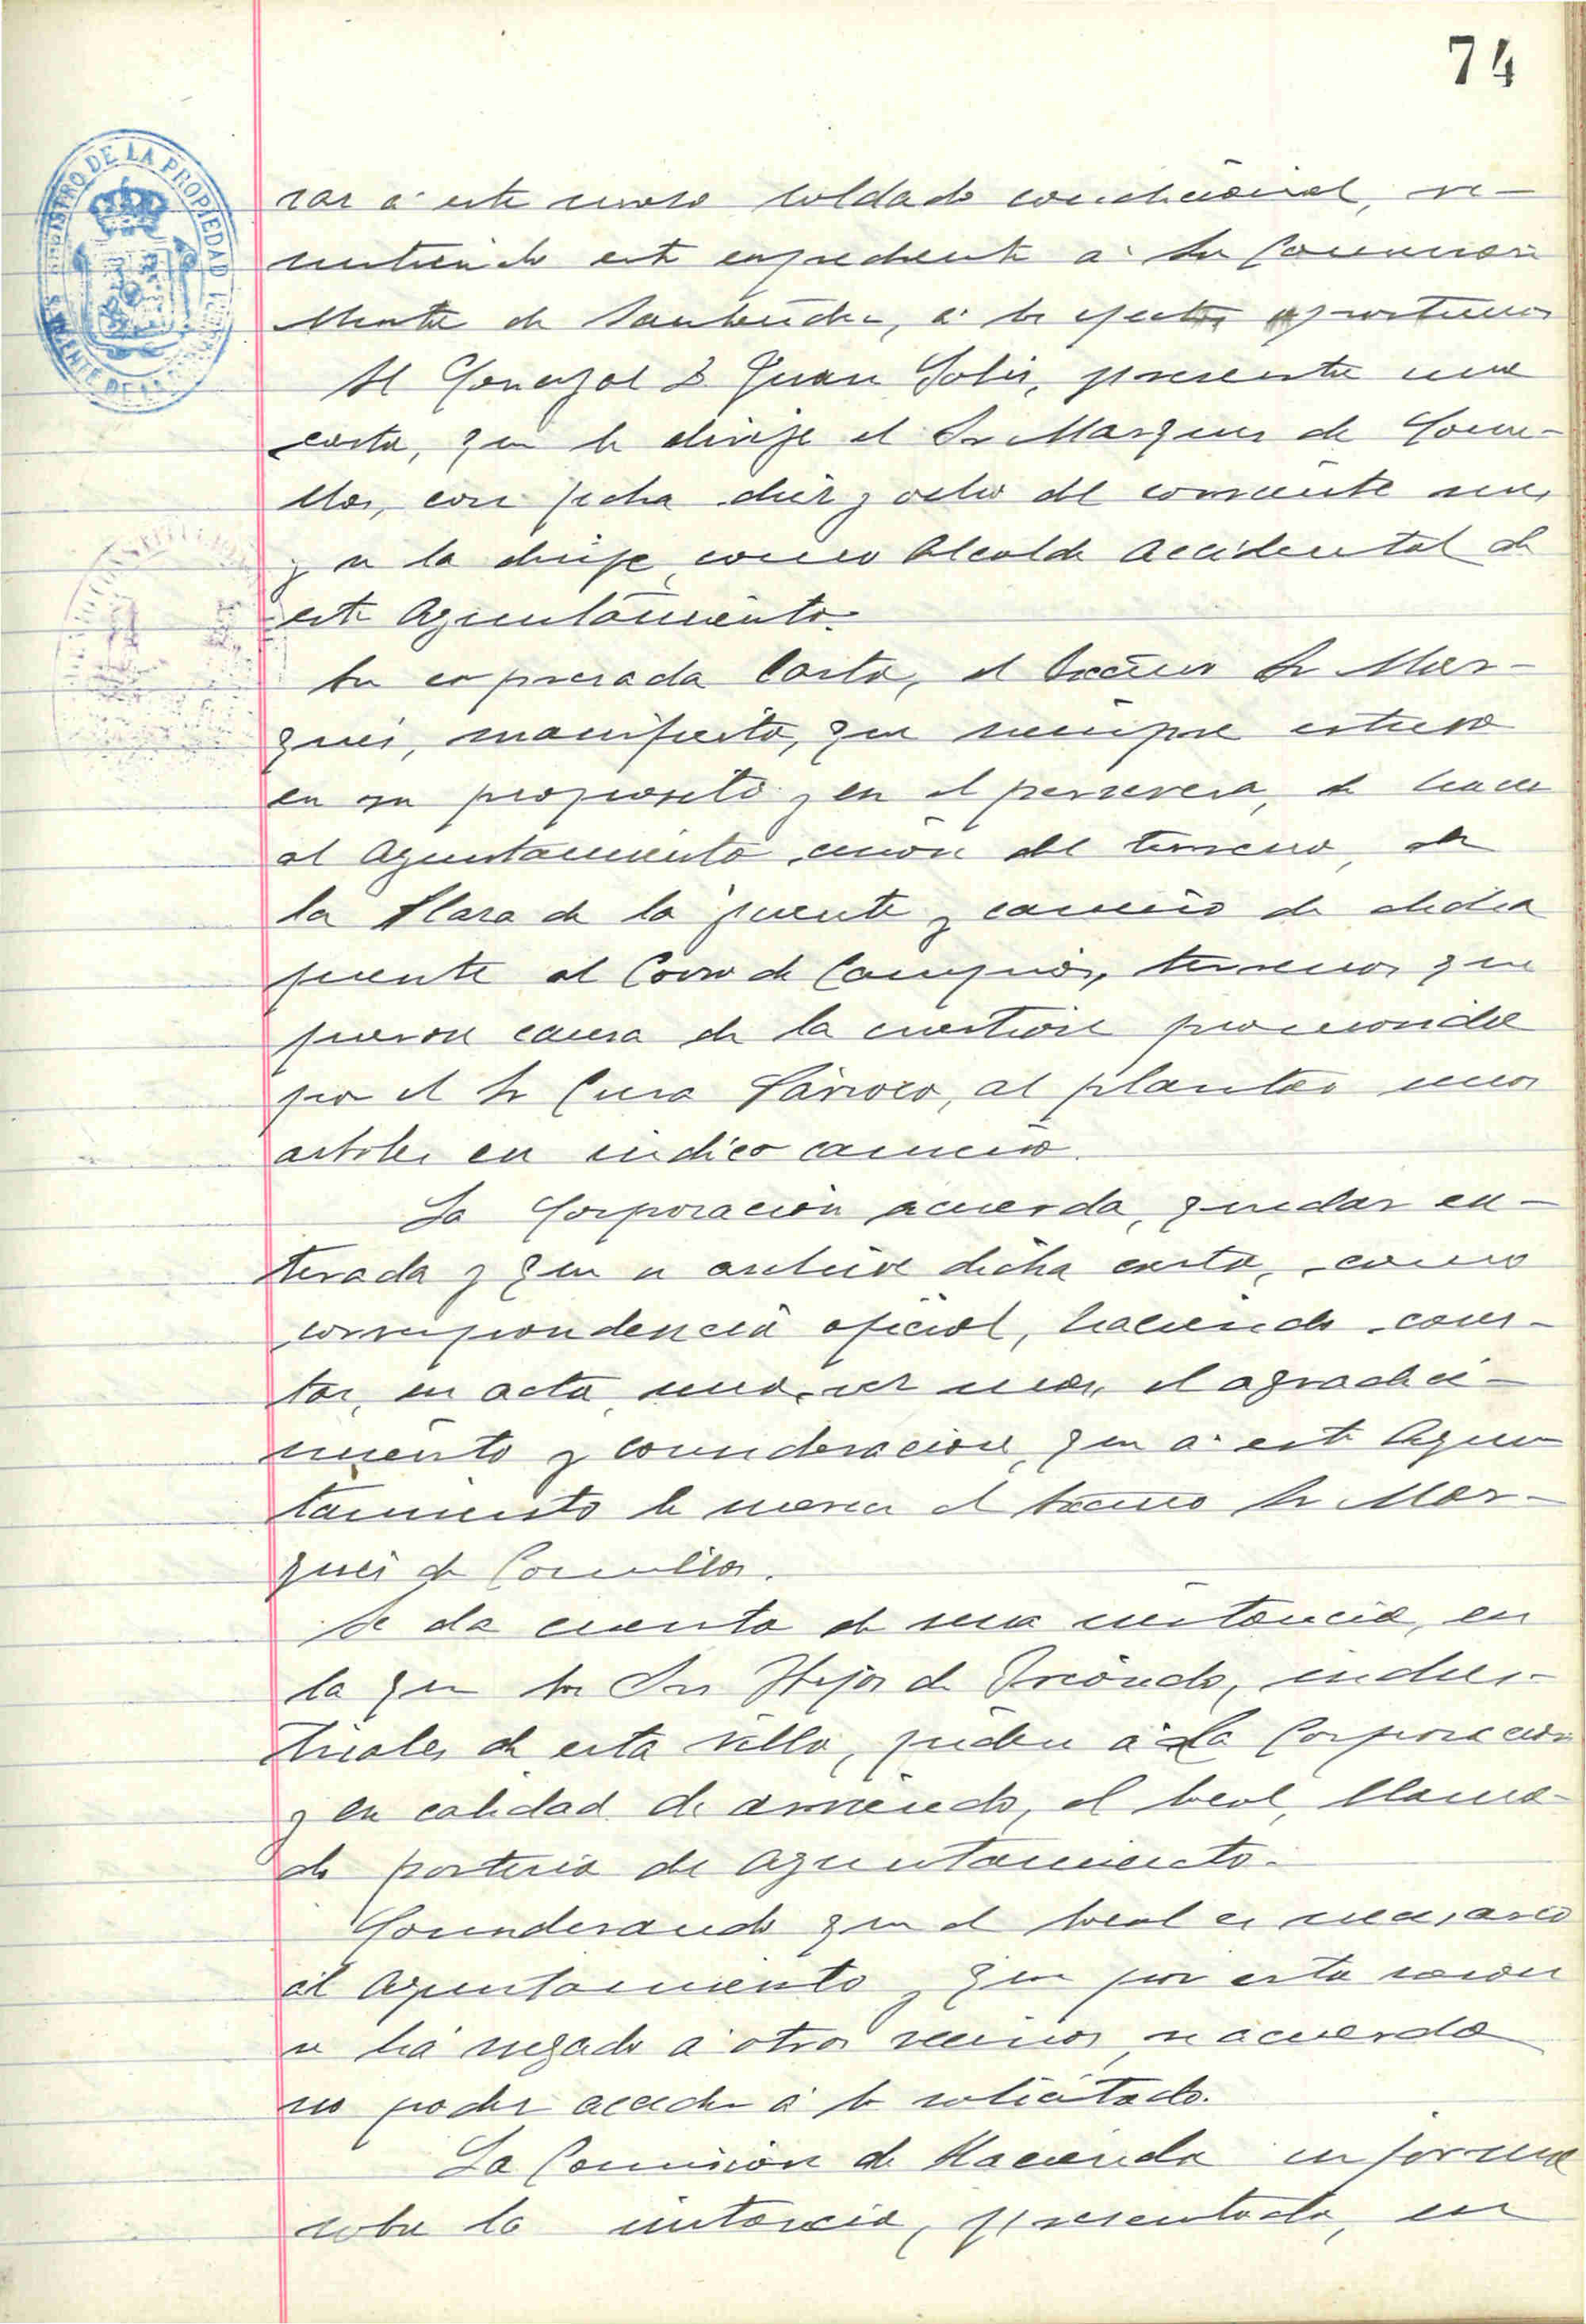 74
REGISTRO DE LA PROPIEDAD
rar á este mozo soldado condicional, re-
mitiendo este expediente á la Comision
Mixta de Santander, á los efectos oportunos
El Concejal D Juan Solis, presenta una
carta, que le dirije el Sr Marques de Comi-
llas, con fecha diez y ocho del corriente mes,
y se la dirije como Alcalde Accidental de
este Ayuntamiento.
En expresada Carta, el Excmo Sr Mar-
qués, manifiesta, que siempre estuvo
en su proposito y en el persevera, de hacer
al Ayuntamiento cesión del terreno, de
la Plaza de la fuente y camino de dicha
fuente al Corro de Campios, terrenos que
fueron causa de la cuestión promovida
por el Sr Cura Párroco, al plantar unos
arboles en indico camino.
La Corporación acuerda, quedar en-
terada y que se archive dicha carta, como
correspondencia oficial, haciendo cons-
tar, en acta una vez mas, el agradeci-
miento y consideracion, que á este Ayun
tamiento le merece el Excmo Sr Mar-
qués de Comillas.
Se da cuenta de una instancia, en
la que los Srs Hijos de Iriondo, indus-
triales de esta villa, piden á la Corporación
y en calidad de arriendo, el local, llama-
do porteria de Ayuntamiento.
Considerando que el local es necesario
al Ayuntamiento y que por esta razon
se há negado á otros vecinos, se acuerda
no poder acceder á lo solicitado.
La Comisión de Hacienda informa
sobre la instancia, presentada, en